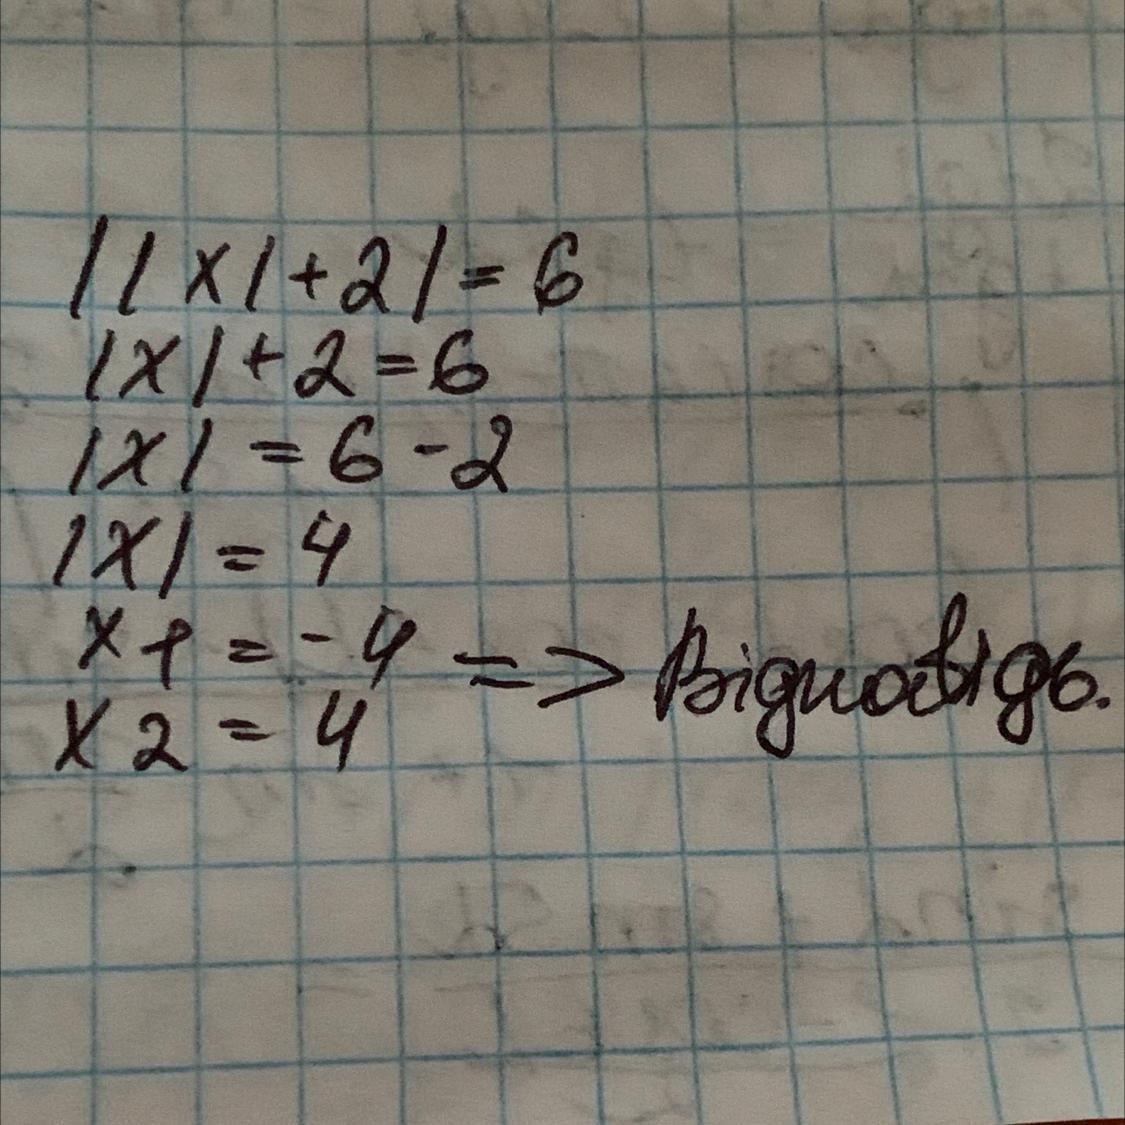 ||x|+2|=6
|x|+2=6
|x| = 6-2
|x| = 4
x1 = -4
x2 = 4 => Відповідь.